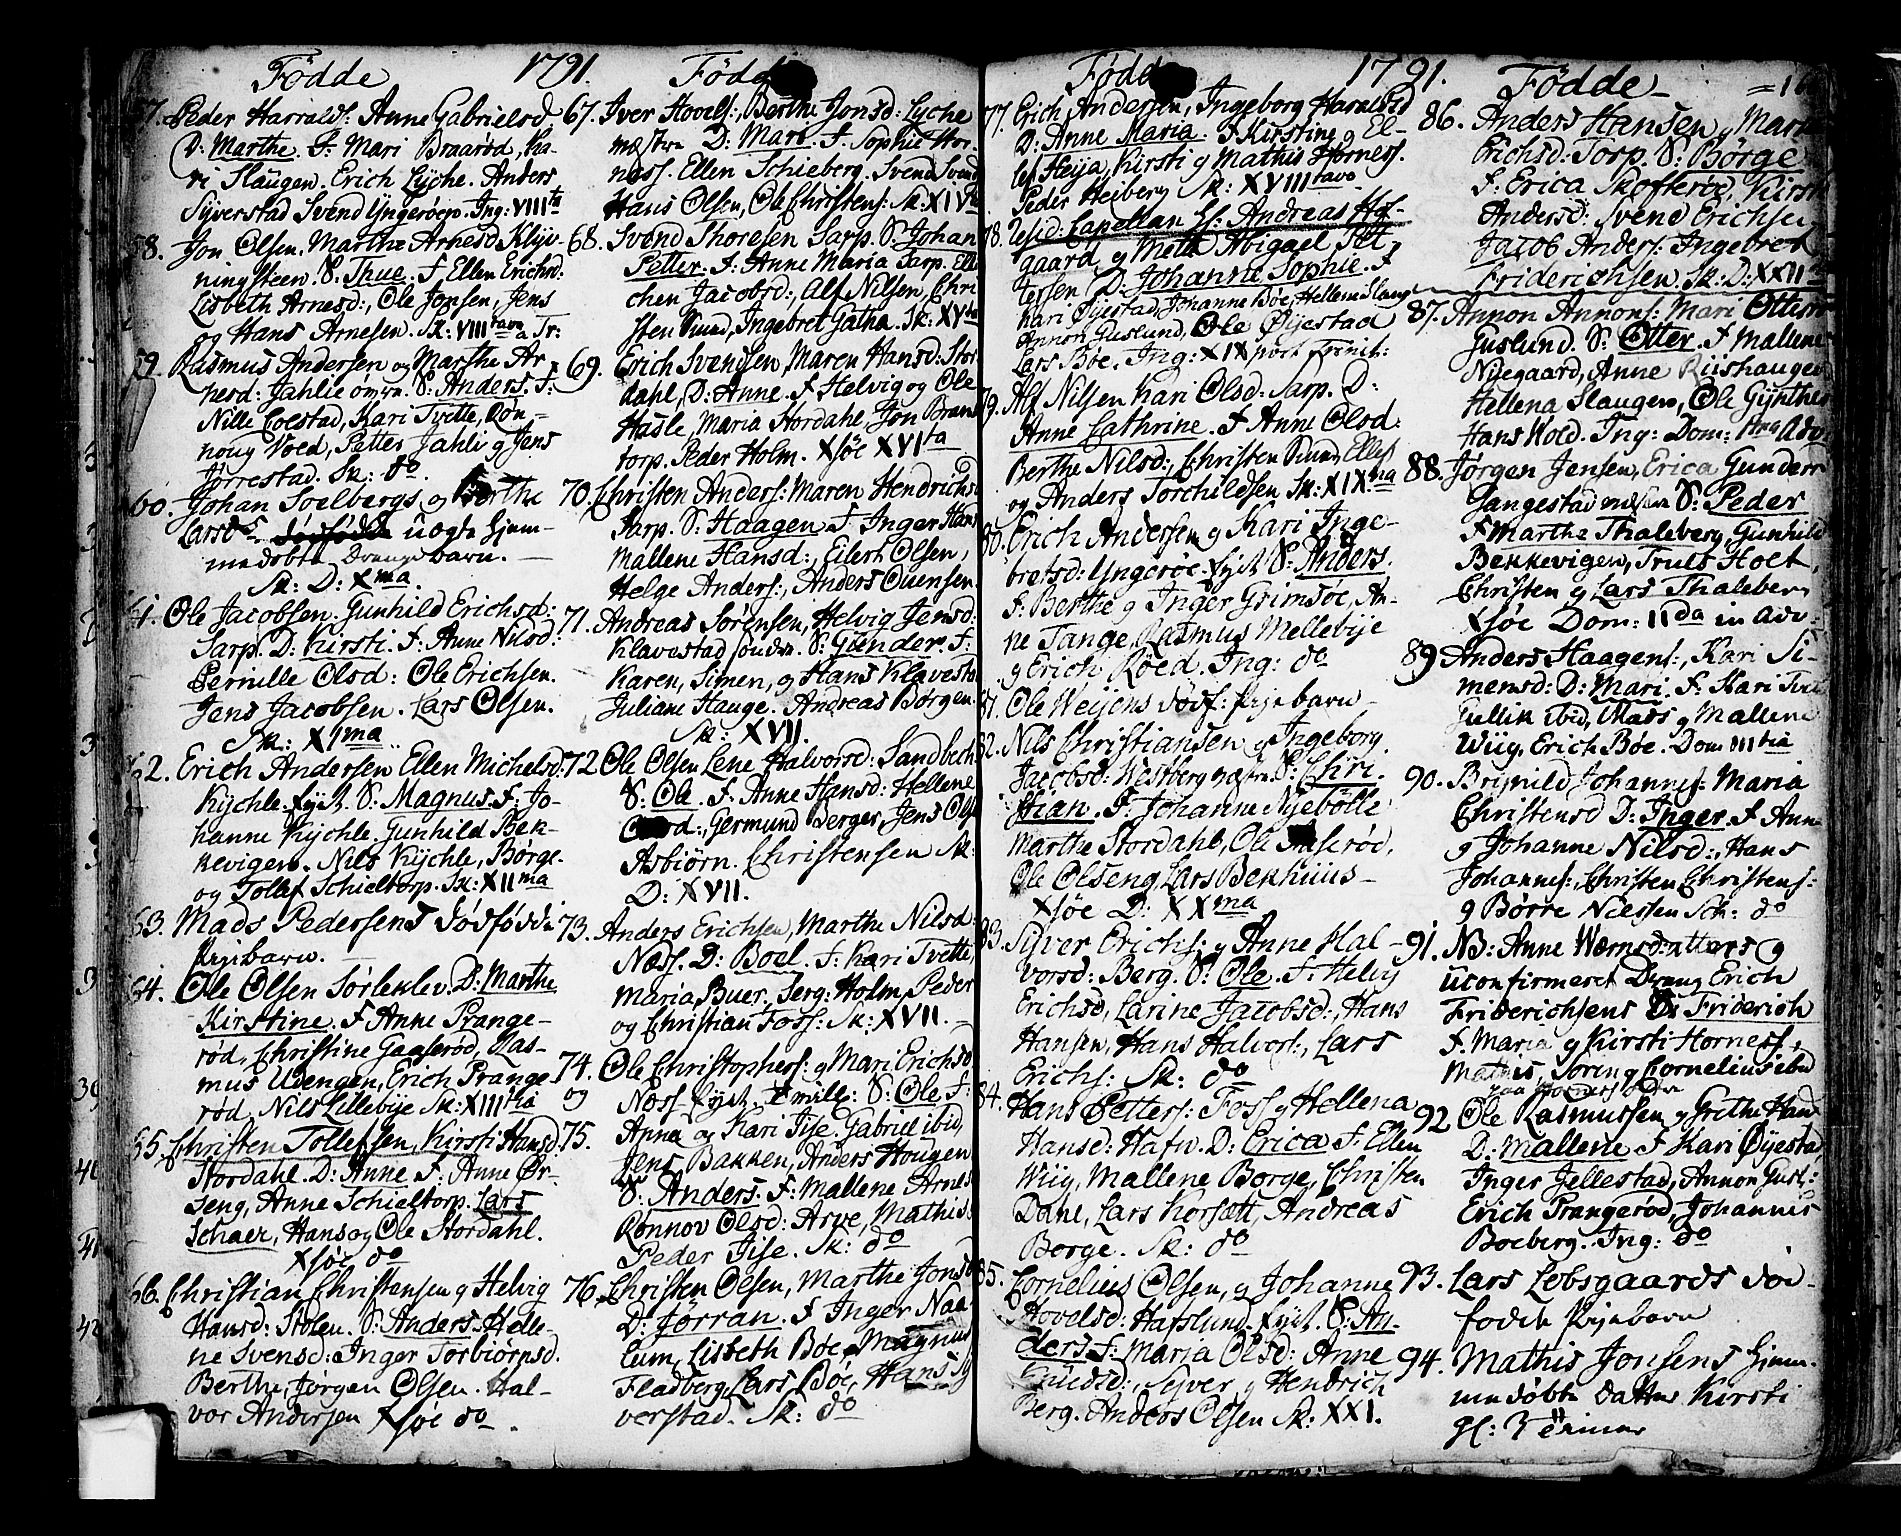 Födde 1791.
57. Peder Harralds: Anne Gabrielsd
D: Marthe. F. Mari Braarød, Ka-
ri Slaugen. Erich Lyche. Anders
Syverstad Svend Yngerøe. Ing: VIIIta
58. Jon Olsen. Marthe Arnesd Kljv-
ningsteen. S: Thue. F Ellen Erichsd:
Lisbeth Arnesd:, Ole Jonsen, Jens
og Hans Arnesen. Sk: VIIItava Tr:
59. Rasmus Andersen og Marthe Ar
nesd: Jahlie S: Anders. F:
Nille Coestad, Kari Tvette, Røn-
noug Voed, Petter Jahli og Jens
Torrestad. Sk: do.
60. Johan Soelbergs og Berthe
Larsd: uægte hjem-
medøbte Drengebarn.
Sk: D: Xma.
61. Ole Jacobsen. Gunhild Erichsd:
Sarp. D: Kirsti. F: Anne Nilsd:
Pernille Olsd: Ole Erichsen.
Jens Jacobsen. Lars Olsen.
Sk: XIma
62. Erich Andersen Ellen Michelsd:
Kychle. S: Magnus. F: Jo-
hanne Kychle, Gunhild Bek-
kevigen. Nils Kychle, Børge
og Tollef Schieltorp. Sk: XIIma
63. Mads Pedersens dødfødde
Pigebarn.
64. Ole Olsen Sørleklev. D: Marthe
Kirstine. F Anne Prange-
rød, Christine Gaaserød, Ras-
mus Udengen, Erich Prange-
rød, Nils Lillebye Sk: XIIItia
65. Christen Tollefsen, Kirsti Hansd
Stordahl. D: Anne. F: Anne Ør-
seng, Anne Schieltorp. Lars
Schaer, Hans og Ole Stordahl.
Xsöe do
66. Christian Christensen og Helvig
Hansd: Stolen. S: Anders. Helle-
ne Svensd: Inger Torbiørnsd.
Berthe, Jørgen Olsen. Hal-
vor Andersen Xsöe do.
Födde
67. Iver Hovels:, Berthe Jonsd: Lyche
D: Mari. F. Sophie Hor-
ness. Ellen Schieberg. Svend Svend
Hans Olsen, Ole Christens: Sk: XIVta
68. Svend Thoresen Sarp. S: Johan
Petter. F: Anne Maria Sarp. Elle
chen Jacobsd:, Alf Nilsen, Chri
sten Sund, Ingebret Gatha. Sk: XVta
69. Erich Svendsen, Maren Hansd: Stor
dahl, D: Anne. F Helvig og Ole
Hasle, Maria Stordahl, Jon Bram
torp. Peder Holm. Xsöe XVIta
70. Christen Anders: Maren Hendrichsd
Sarp. S: Haagen. F Inger Hans
Mallene Hansd:, Eilert Olsen,
Helge Anders:, Anders Ouensen
71. Andreas Sørensen, Helvig Jensd:
Klavestad søndre. S: Gunder. F:
Karen, Simen, og Hans Klavesta
Juliane Hauge. Andreas Børgen
Sk: XVII.
72. Ole Olsen Lene Halvorsd: Sandbech
S: Ole. F. Anne Hansd: Hellene
Germund Berger, Jens Ols
Asbiörn. Christensen Sk:
D: XVII.
73. Anders Erichsen, Marthe Nilsd:
Næss. D: Boel. F: Kari Tvette,
Maria Buer, Serg: Holm, Peder
og Christian Foss: Sk: XVII.
74. Ole Christophers: og Mari Erichsd
og Næss S: Ole F:
75. Anna og Kari Jise. Gabriel ibid,
Jens Bakken, Anders Hougen
S: Anders. F: Mallene Arnes
Rønnov Olsd: Arve, Mathis
Peder Jise. Sk: do
76. Christen Olsen, Marthe Jonsd
D: Jörran. F Inger Naa-
lum, Lisbeth Böe, Magnus
Fladberg, Lars Böe, Hans Sy
verstad. Sk: do
Född 1791.
77. Erich Andersen, Ingeborg Haraldsd
D: Anne Maria. F Kirstine og El-
lef Heija, Kirsti og Mathis Hornes.
Peder Heiberg Sk: XVIIItavo
78. Resid: Capellan Hr: Andreas Høf-
gaard og Mette Abigael Pet-
tersen D: Johanne Sophie. F
Kari Øijestad, Johanne Böe, Hellem Slaug
Annon Guslund, Ole Øijestad
Lars Böe. Ing: XIX post Trinit:
79. Alf Nilsen Kari Olsd: Sarp. D:
Anne Cathrine. F Anne Olsd:
Berthe Nilsd:, Christen Sund, Ellef
og Anders Torchildsen Sk: XIXma
80. Erich Andersen og Kari Inge-
bretsd: Yngerøe. S: Anders.
F: Berthe og Inger Grimsøe, An-
ne Tange, Rasmus Mellebije
og Erich Röed. Ing: do
81. Ole Weijens dødf: Pigebarn
82. Nils Christiansen og Ingeborg
Jacobsd: Westberg S: Chri-
stian. F. Johanne Nyebölle
Marthe Stordahl, Ole
Ole Olseng, Lars Bekhuus
Xsöe D: XXma
83. Syver Erichs: og Anne Hal-
vorsd: Berg. S: Ole. F: Helvig
Erichsd, Larine Jacobsd:, Hans
Hansen, Hans Halvors:, Lars
Erichs: Sk: do
84. Hans Petters: Foss og Hellena
Hansd: Hafn. D: Erica F: Ellen
Wiig, Mallene Borge, Christen
Dane, Lars Korsætt, Andreas
Borge. Sk: do
85. Cornelius Olsen, og Johanne
Hovelsd: Hafslund. S: An-
ders F: Maria Olsd: Anne
Syver og Hendrich
Berg. Anders Olsen Sk: XXI.
Födde =16
86. Anders Hansen og Marthe
Erichsd: Torp. S: Börge
F: Erica Skofterøe, Kirsti
Andersd: Svend Erichsen
Jacob Anders: Ingebret
Friderichsen. Sk: D: XXII
87. Annon Annons: Mari Otters
Guslund. S: Otter. F Mallene
Nijegaard, Anne Riishaugen
Hellena Slaugen, Ole Gynther
Hans Wold. Ing: Dom: 1ma Adv.
88. Jørgen Jensen, Erica Gunders
Tangestad S: Peder
F Marthe Thaleberg, Gunhild
Bekkevigen, Truls Holt,
Christen og Lars Thaleberg
Xsöe Dom: IIda in Adv:
89. Anders Haagens:, Kari Si-
mensd: D: Mari. F. Kari Tvet
Gullik ibid, Mads og Mallene
Wiig, Erich Böe. Dom IIItia
90. Brynild Johannes: Maria
Christensd D: Inger. F Anne
og Johanne Nilsd:, Hans
Johannes:, Christen Christens:
og Börre Nielsen Sk: do
91. NB: Anne Wærnsdatters og
uconfirmeret Dreng Erich
Friderichsens S: Friderich
F. Maria og Kirsti Horness,
Mathis, Soren og Cornelius ibid
92. Ole Rasmussen og Grethe Hans
D: Mallene F Kari Øijestad,
Inger Jellestad, Annon Gusl:
Erich Prangerød, Johannes
Boeberg. Ing: do
93. Lars Lobsgaards død-
fødde Pigebarn
94. Mathis Jonsens hjem-
medøbte datter Kirsti
gl: 3